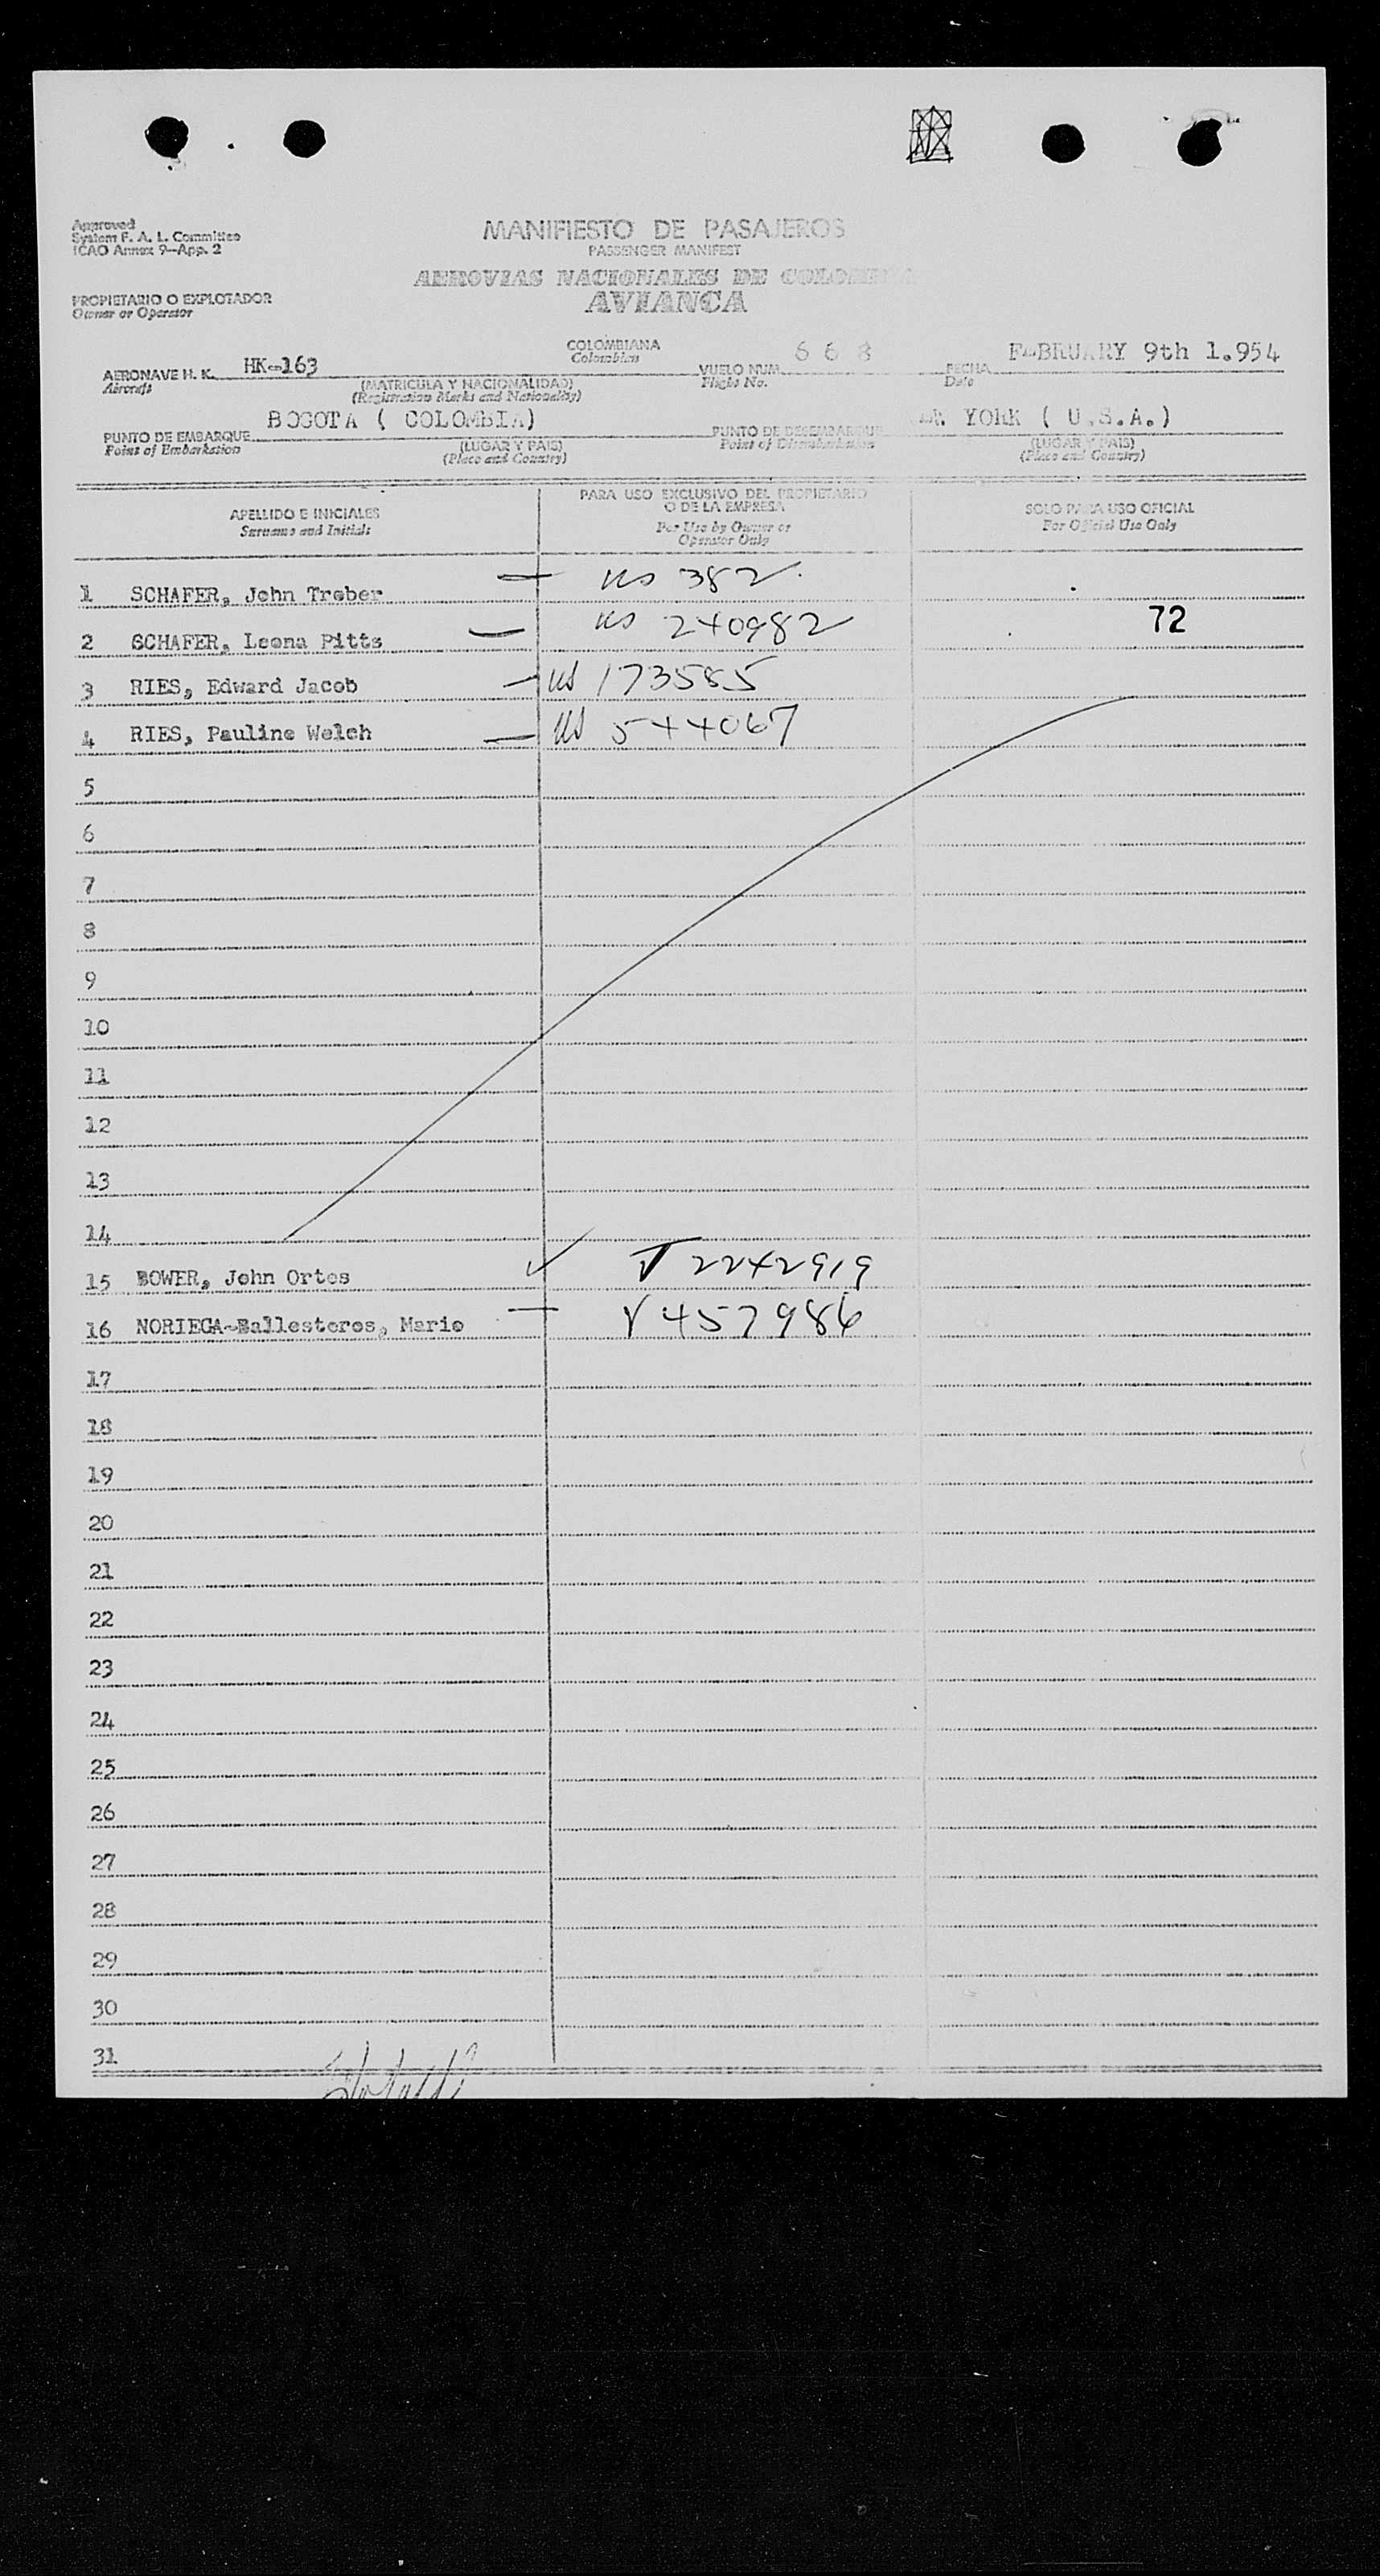 Approved
System F. A. L. Committee
ICAO Annex 9-App. 2
MANIFIESTO DE PASAJEROS
PASSENGER MANIFEST
AEROVIAS NACIONALES DE COLOMBIA
AVIANCA
PROPIETARIO O EXPLOTADOR
Owner or Operator
AERONAVE H. K. HK-163 COLOMBIANA VUELO NUM. 668 FECHA FEBRUARY 9th 1.954
Aircraft Colombian Flight No. Date
(MATRICULA Y NACIONALIDAD)
(Registration Marks and Nationality)
PUNTO DE EMBARQUE BOGOTA ( COLOMBIA) PUNTO DE DESEMBARQUE YORK ( U.S.A.)
Point of Embarkation (LUGAR Y PAIS) Point of Disembarkation (LUGAR Y PAIS)
(Place and Country) (Place and Country)
APELLIDO E INICIALES PARA USO EXCLUSIVO DEL PROPIETARIO O DE LA EMPRESA SOLO PARA USO OFICIAL
Surname and Initials For Use by Owner or Operator Only For Official Use Only
1 SCHAFER, John Treber — US 382
2 SCHAFER, Leona Pitts — US 240982 72
3 RIES, Edward Jacob — US 173585
4 RIES, Pauline Welch — US 544067
5
6
7
8
9
10
11
12
13
14
15 BOWER, John Ortos ✓ V 2242919
16 NORIEGA-Ballesteros, Mario — V 457986
17
18
19
20
21
22
23
24
25
26
27
28
29
30
31